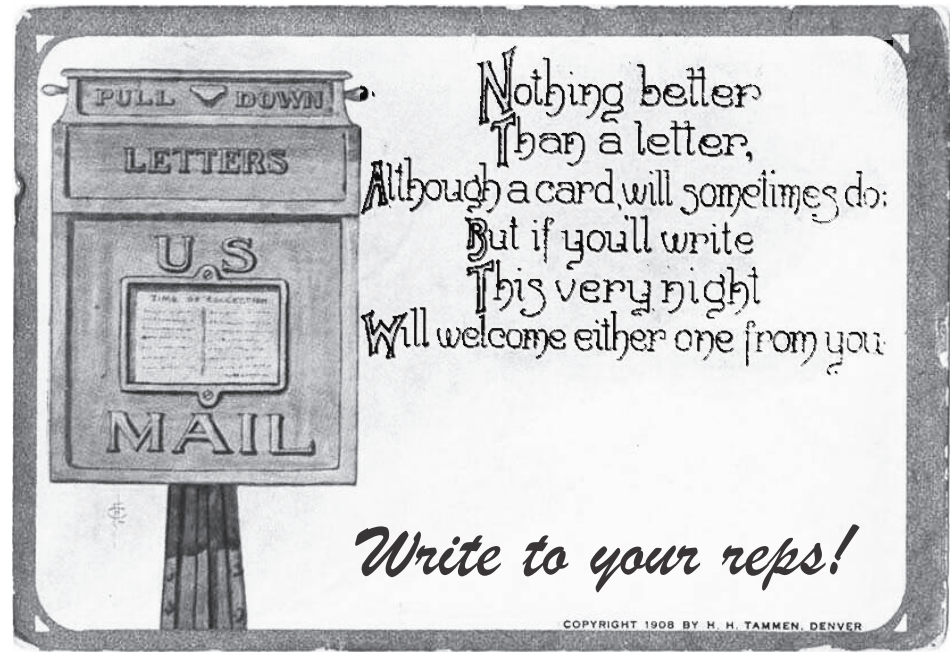 PULL DOWN
LETTERS
U S
TIME OF COLLECTION
MAIL
Nothing better
Than a letter,
Although a card, will sometimes do:
But if you'll write
This very night
Will welcome either one from you
Write to your reps!
COPYRIGHT 1908 BY H. H. TAMMEN, DENVER